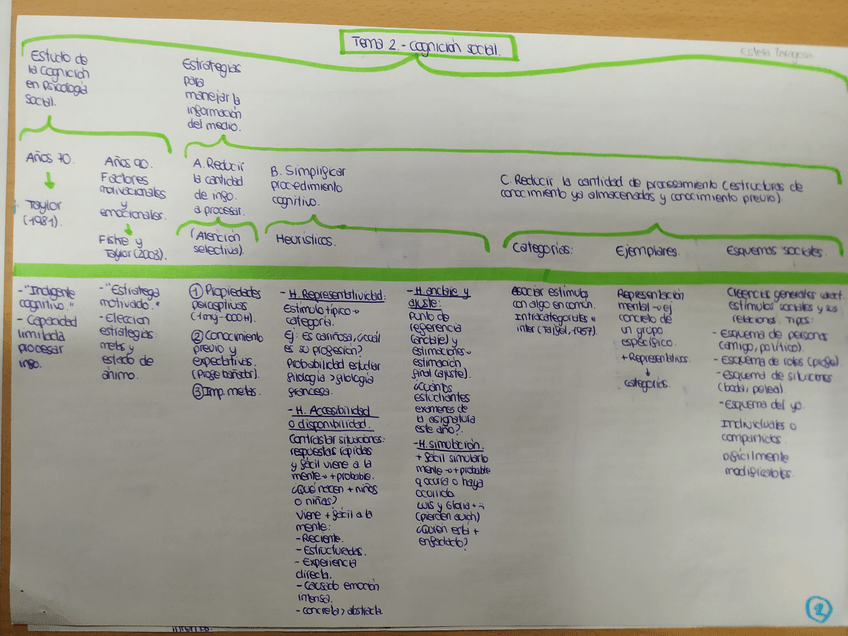 Tema 2.- Cognición social.
Estela Zaragoza
Estudio de
la Cognición
en Psicología
Social.
Estrategias
para
manejar la
información
del medio.
Años 70.
Taylor
(1981).
Años 90.
Factores
motivacionales
y
emocionales.
Fiske y
Taylor (2003).
A. Reducir
la cantidad
de info.
a procesar.
(Atención
selectiva).
B. Simplificar
procedimiento
cognitivo.
Heurísticos.
C. Reducir la cantidad de procesamiento (estructuras de
conocimiento ya almacenados y conocimiento previo).
Categorías:
Ejemplares.
Esquemas sociales.
-"Indigente
cognitivo."
- Capacidad
limitada
procesar
info.
-"Estratega
motivado."
- Elección
estrategias:
metas y
estado de
ánimo.
① Propiedades
perceptivas
② Conocimiento
previo y
expectativas.
(Profe bañador).
③ Imp. metas.
- H. Representatividad:
Estímulo típico →
categoría.
Ej: es cariñosa, ¿cuál
es su profesión?
Probabilidad estudiar
filología > filología
francesa.
- H. Accesibilidad
o disponibilidad.
Contrastar situaciones:
respuestas rápidas
y fácil viene a la
mente → + probable.
¿Qué nacen + niños
o niñas?
Viene + fácil a la
mente:
- Reciente.
- Estructuradas.
- Experiencia
directa.
- Causado emoción
intensa.
- concreta > abstracta
- H. anclaje y
ajuste:
Punto de
referencia
(anclaje) y
estimaciones →
estimación
final (ajuste).
¿Cuántos
estudiantes
exámenes de
la asignatura
este año?.
- H. simulación.
+ fácil simularlo
mente → + probable
q ocurra o haya
ocurrido
Luis y Gloria + ∴
(pierden avión)
¿Quién está +
enfadado?
Asociar estímulos
con algo en común.
Intracategorías ≠
inter (Tajfel, 1957).
Representación
mental → ej
concreto de
un grupo
específico.
+ Representativos
↓
categorías.
Creencias generales
estímulos sociales y sus
relaciones. Tipos:
- Esquema de personas
(amigo, político).
- Esquema de roles (profe).
- Esquema de situaciones
(boda, pelea).
- Esquema del yo.
Individuales o
compartidos
Difícilmente
modificables.
2